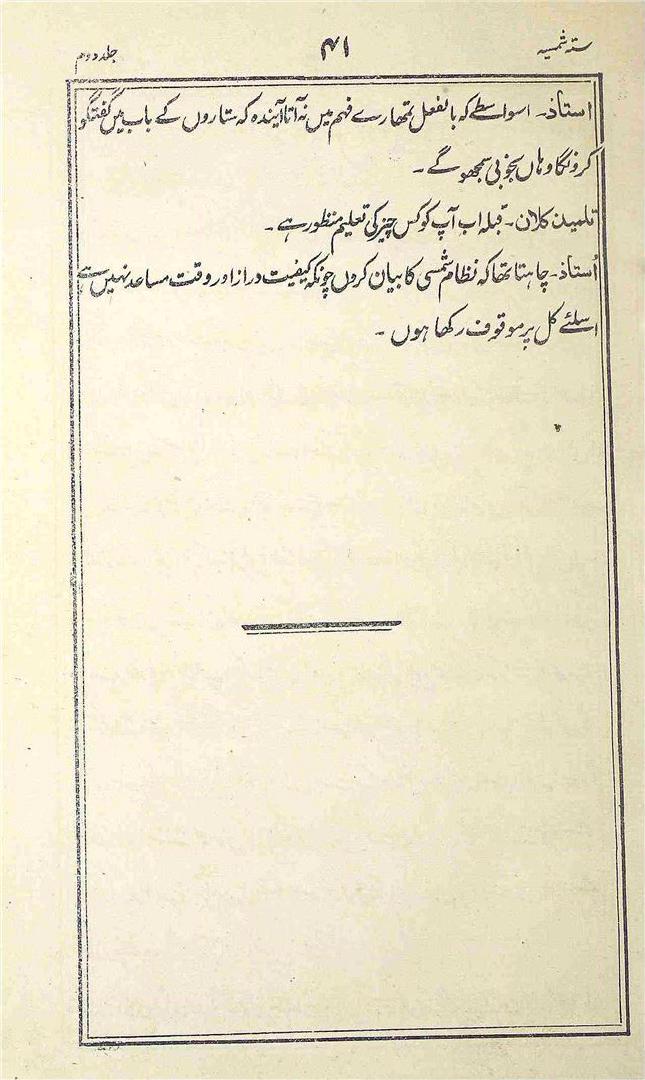 ستہ شمسیہ ۴۱ جلد دوم
استاذ۔ اسواسطے کہ بالفعل تمھارے فہم میں نہ آتا آیندہ کہ ستاروں کے باب میں گفتگو
کرونگا وہاں بخوبی سمجھو گے۔
تلمیذ کلان۔ قبلہ اب آپ کو کس چیز کی تعلیم منظور ہے۔
اُستاذ۔ چاہتا تھا کہ نظام شمسی کا بیان کروں چونکہ کیفیت دراز اور وقت مساعد نہیں ہے
اسلئے کل پر موقوف رکھا ہوں۔